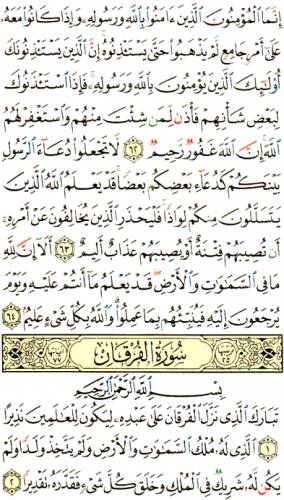 إِنَّمَا ٱلْمُؤْمِنُونَ ٱلَّذِينَ ءَامَنُوا۟ بِٱللَّهِ وَرَسُولِهِۦ وَإِذَا كَانُوا۟ مَعَهُۥ
عَلَىٰٓ أَمْرٍ جَامِعٍ لَّمْ يَذْهَبُوا۟ حَتَّىٰ يَسْتَـْٔذِنُوهُ ۚ إِنَّ ٱلَّذِينَ يَسْتَـْٔذِنُونَكَ
أُو۟لَـٰٓئِكَ ٱلَّذِينَ يُؤْمِنُونَ بِٱللَّهِ وَرَسُولِهِۦ ۚ فَإِذَا ٱسْتَـْٔذَنُوكَ
لِبَعْضِ شَأْنِهِمْ فَأْذَن لِّمَن شِئْتَ مِنْهُمْ وَٱسْتَغْفِرْ لَهُمُ
ٱللَّهَ ۚ إِنَّ ٱللَّهَ غَفُورٌ رَّحِيمٌ ﴿٦٢﴾ لَّا تَجْعَلُوا۟ دُعَآءَ ٱلرَّسُولِ
بَيْنَكُمْ كَدُعَآءِ بَعْضِكُم بَعْضًا ۚ قَدْ يَعْلَمُ ٱللَّهُ ٱلَّذِينَ
يَتَسَلَّلُونَ مِنكُمْ لِوَاذًا ۚ فَلْيَحْذَرِ ٱلَّذِينَ يُخَالِفُونَ عَنْ أَمْرِهِۦٓ
أَن تُصِيبَهُمْ فِتْنَةٌ أَوْ يُصِيبَهُمْ عَذَابٌ أَلِيمٌ ﴿٦٣﴾ أَلَآ إِنَّ لِلَّهِ
مَا فِى ٱلسَّمَـٰوَٰتِ وَٱلْأَرْضِ ۖ قَدْ يَعْلَمُ مَآ أَنتُمْ عَلَيْهِ وَيَوْمَ
يُرْجَعُونَ إِلَيْهِ فَيُنَبِّئُهُم بِمَا عَمِلُوا۟ ۗ وَٱللَّهُ بِكُلِّ شَىْءٍ عَلِيمٌۢ ﴿٦٤﴾
سُورَةُ ٱلْفُرْقَانِ
بِسْمِ ٱللَّهِ ٱلرَّحْمَـٰنِ ٱلرَّحِيمِ
تَبَارَكَ ٱلَّذِى نَزَّلَ ٱلْفُرْقَانَ عَلَىٰ عَبْدِهِۦ لِيَكُونَ لِلْعَـٰلَمِينَ نَذِيرًا
﴿١﴾ ٱلَّذِى لَهُۥ مُلْكُ ٱلسَّمَـٰوَٰتِ وَٱلْأَرْضِ وَلَمْ يَتَّخِذْ وَلَدًا وَلَمْ
يَكُن لَّهُۥ شَرِيكٌ فِى ٱلْمُلْكِ وَخَلَقَ كُلَّ شَىْءٍ فَقَدَّرَهُۥ تَقْدِيرًا ﴿٢﴾